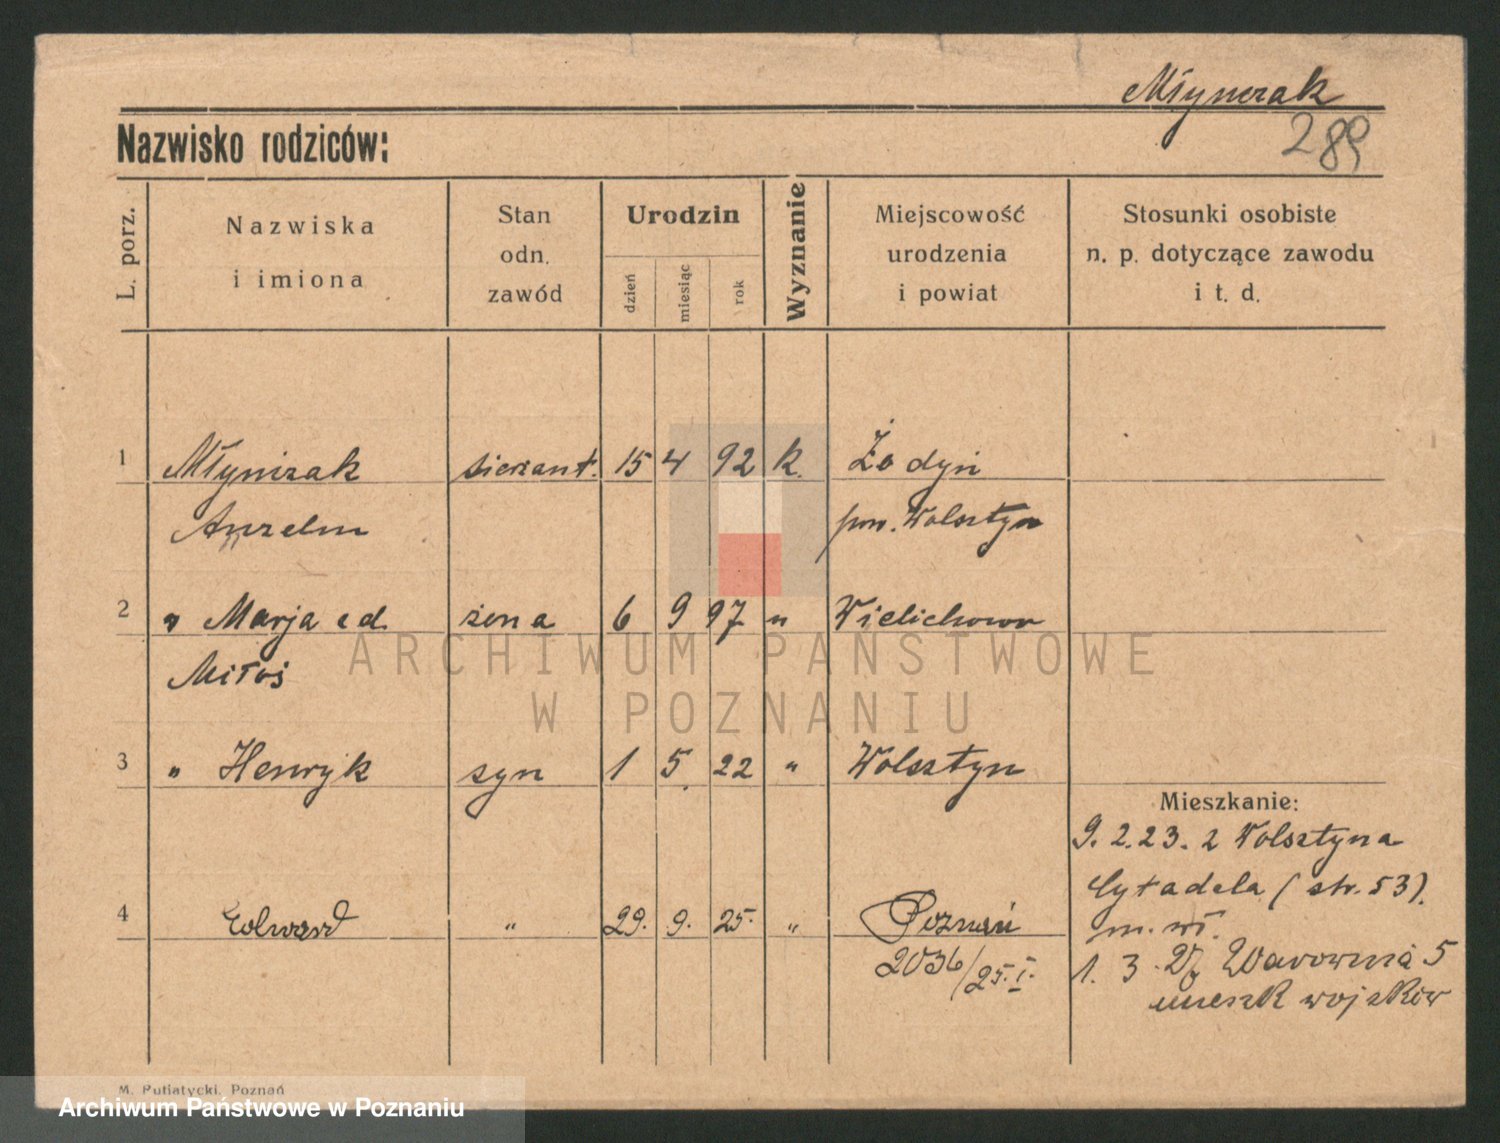 Młynczak
289
Nazwisko rodziców:
L. porz.
Nazwiska
i imiona
Stan
odn.
zawód
Urodzin
dzień
miesiąc
rok
Wyznanie
Miejscowość
urodzenia
i powiat
Stosunki osobiste
n. p. dotyczące zawodu
i t. d.
1 Młynczak sierżant. 15 4 92 k. Żodyń
Anzelm pow. Wolsztyn
2 " Marja z d. żona 6 9 97 " Wielichowo
Miłoś
3 " Henryk syn 1 5 22 " Wolsztyn
4 Edward " 29. 9. 25. " Poznań
2036/25. I.
Mieszkanie:
9. 2. 23. z Wolsztyna
Cytadela (str. 53).
m. wł.
1. 3. Warownia 5
mieszk wojsków
M. Putiatycki, Poznań
ARCHIWUM PAŃSTWOWE
W POZNANIU
Archiwum Państwowe w Poznaniu